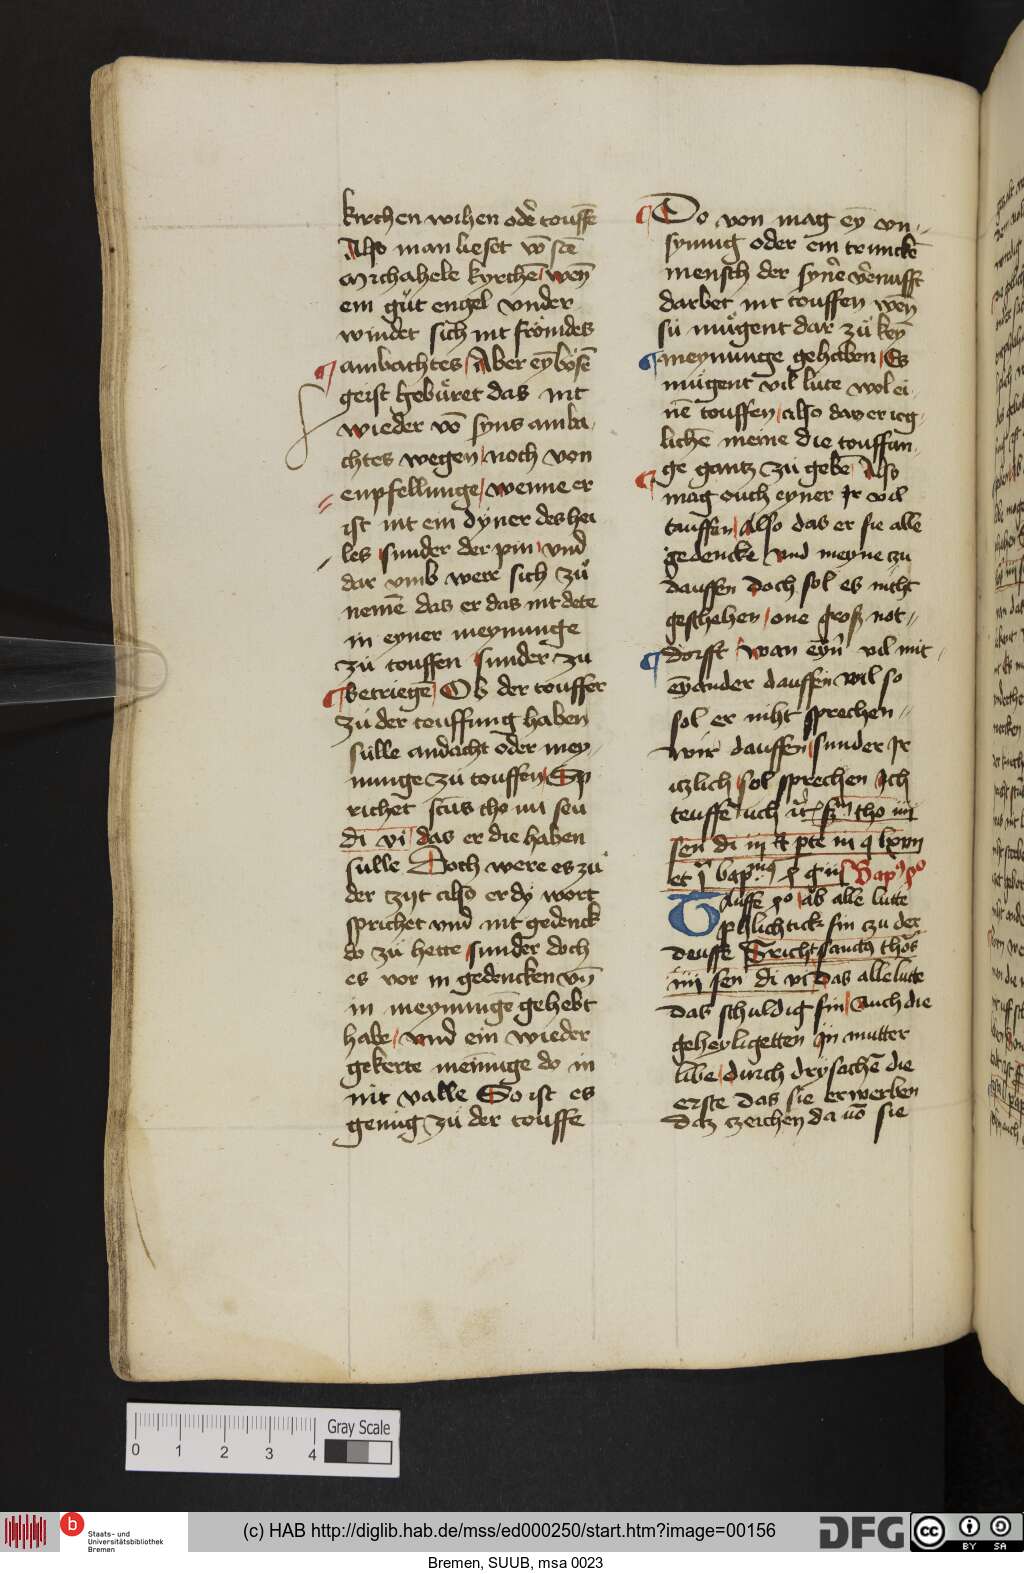 kirchen wihen odẽ touffẽ
Also man lieset võ scẽ
Michahele kyrchẽ wẽn
ein gůt engel vnder
windet sich nit frömdes
ambachtes Aber eȳ bösẽ
geist gebüret das nit
wieder võ syns amba
chtes wegen noch von
enpfellunge wenne er
ist nit ein dyner des hei
les sunder der pin vnd
dar vmb were sich zů
nemẽ das er das nit dete
in eyner meynunge
zü touffen sunder zu
betriegẽ Ob der touffer
zü der touffung haben
sülle andacht oder mey
nunge zü touffen Sp
richet scũs tho iiii sen
di vi das er die haben
sulle Doch were es zů
der zijt also er dy wort
sprichet vnd nit gedenck
do zü hette sunder doch
es vor in gedencken vñ
in meynungẽ gehebt
habe vnd ein wieder
gekerte meinunge do in
nit valle So ist es
genüg zü der touffe
Do von mag eȳ vn
synnig oder ein trunckẽ
mensch der synẽ vẽnufft
darbet nit touffen wẽn
sü mügent dar zü keȳ
meynunge gehaben Es
mügent vil lüte wol ei
nẽ touffen also dar er ieg
lichẽ meine die touffun
ge gantz zü gebẽ Also
mag ouch eyner Ir vil
tauffen Also das er sie alle
gedencke vnd meyne zu
dauffen Doch sol es nicht
geschehen one groß not
dorfft wan eyñ vil mit
eȳander dauffen wil so
sol er niht sprechen
wir dauffen sunder Ir
iczlich sol sprechen Ich
teuffe uch tho iiii
sen di iii et pte iii q lxvii
Bap
Tauffe ob alle lutte
phlichtick sin czu der
deuffe Sricht sanctus thos
iiii sen di vi Das alle lutte
das schuldig sin Auch die
geheyligetten In mutter
libe durch dry sachẽ die
erste das sie erwerben
daz czeichen da võ sie
Gray Scale
0 1 2 3 4
Staats- und
Universitätsbibliothek
Bremen
(c) HAB http://diglib.hab.de/mss/ed000250/start.htm?image=00156
DFG
cc BY SA
Bremen, SUUB, msa 0023